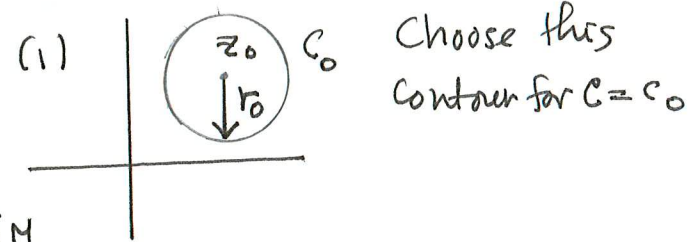 (1)
z₀ C₀
r₀
Choose this
Contour for C = C₀
M